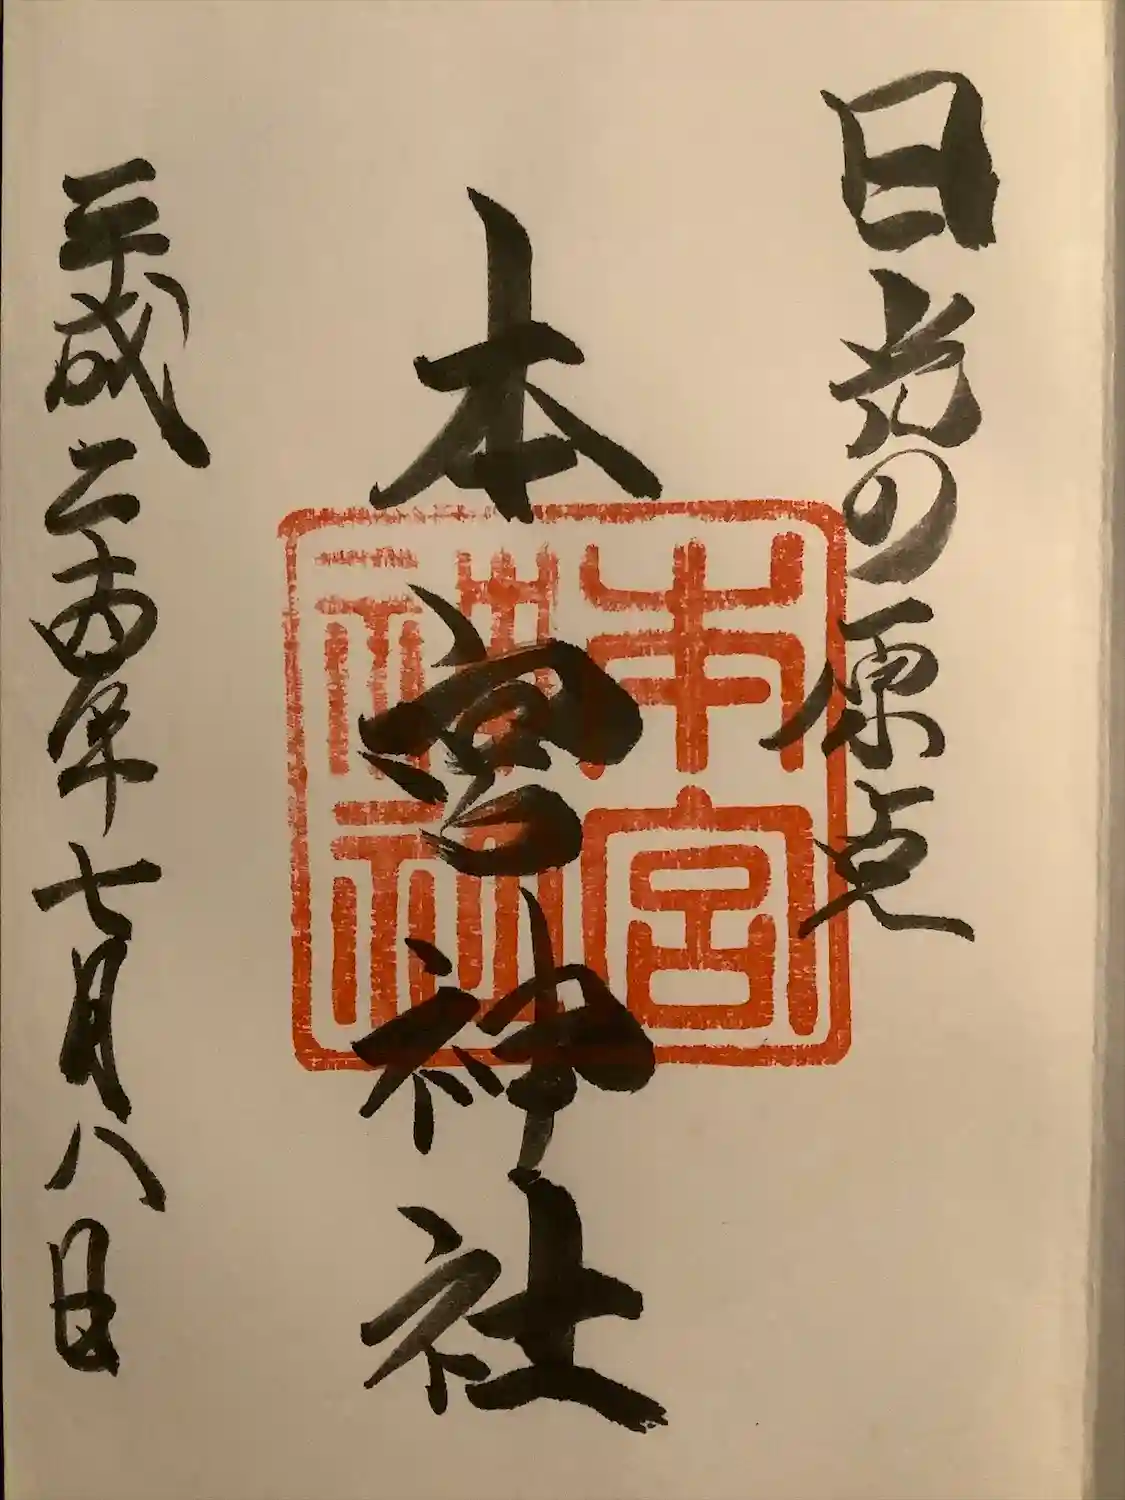 日光の原点
本宮神社
本宮神社
平成二十四年七月八日